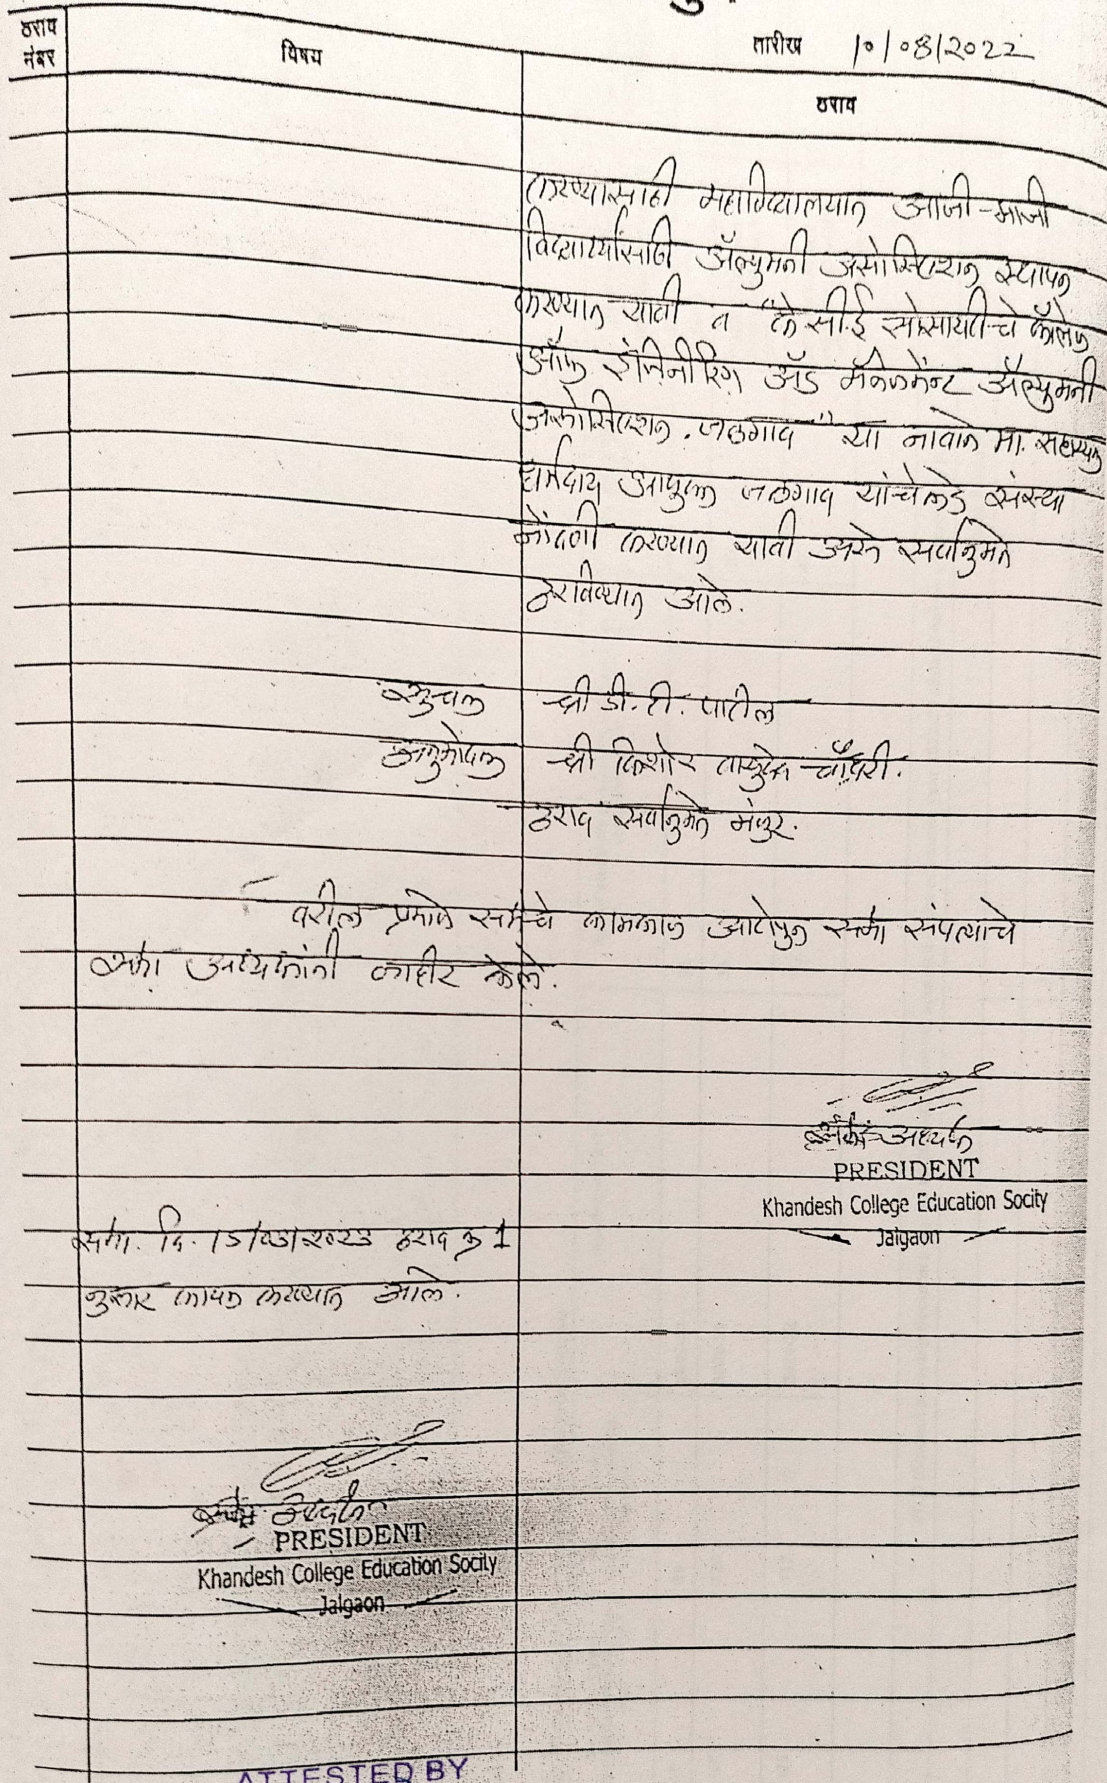 ठराव नंबर
विषय
तारीख 10/08/2022
ठराव
करण्यासाठी महाविद्यालयात आजी-माजी
विद्यार्थ्यांसाठी ॲल्युमनी असोसिएशन स्थापन
करण्यात यावी व "के सी.ई सोसायटीचे कॉलेज
ऑफ इंजिनीरिंग अँड मॅनेजमेंन्ट ॲल्युमनी
असोसिएशन, जळगाव" या नावाने मा. सहाय्यक
धर्मदाय आयुक्त जळगाव यांचेकडे संस्था
नोंदणी करण्यात यावी असे सर्वानुमते
ठरविण्यात आले.
सुचक श्री डी. टी. पाटील
अनुमोदक श्री किशोर वासुदेव चौधरी.
ठराव सर्वानुमते मंजुर.
वरील प्रमाणे सभेचे कामकाज आटोपुन सभा संपल्याचे
सभा अध्यक्षांनी जाहीर केले.
सभा अध्यक्ष
PRESIDENT
Khandesh College Education Socity
Jalgaon
सभा. दि. 15/03/2023 ठराव क्र 1
नुसार कायम करण्यात आले.
सभा अध्यक्ष
PRESIDENT
Khandesh College Education Socity
Jalgaon
ATTESTED BY